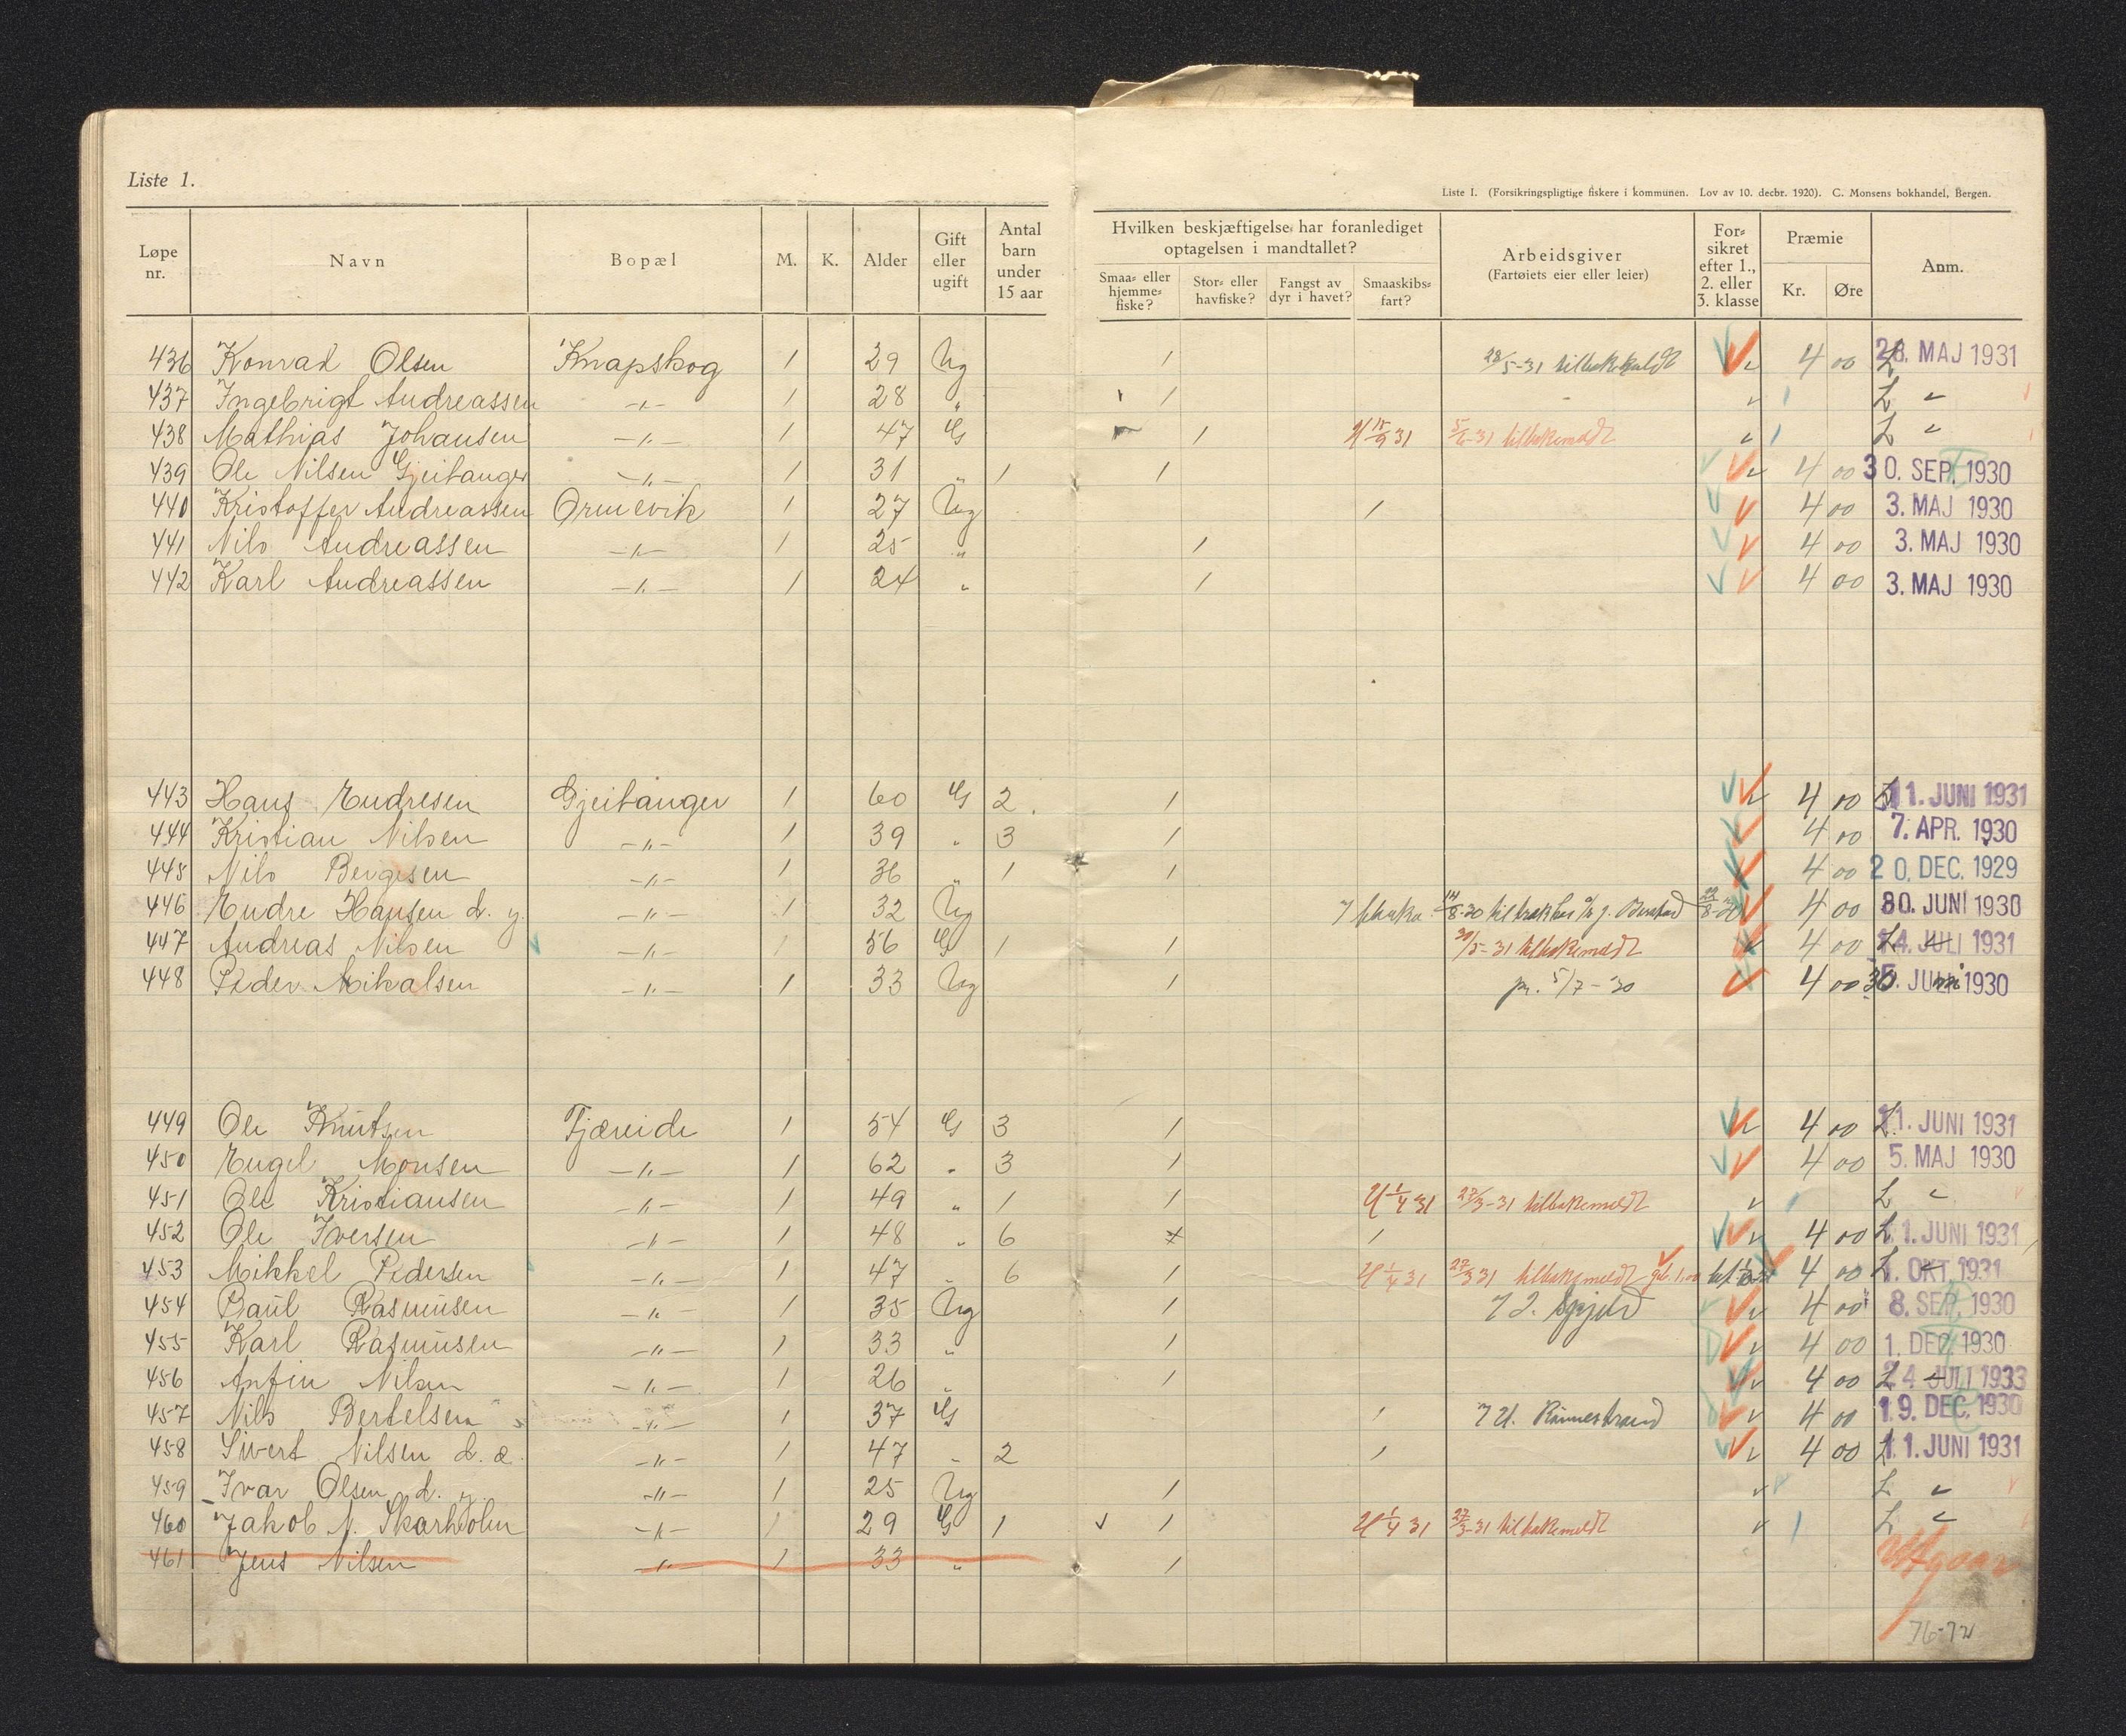 Liste 1.
Liste I. (Forsikringspligtige fiskere i kommunen. Lov av 10. decbr. 1920). C. Monsens bokhandel, Bergen.
Løpe nr. Navn Bopæl M. K. Alder Gift eller ugift Antal barn under 15 aar Hvilken beskjæftigelse har foranlediget optagelsen i mandtallet? Smaa- eller hjemmefiske? Stor- eller havfiske? Fangst av dyr i havet? Smaaskibsfart? Arbeidsgiver (Fartøiets eier eller leier) Forsikret efter 1., 2. eller 3. klasse Præmie Kr. Øre Anm.
436 Konrad Olsen Knapskog 1 29 Ug 1 28/5-31 4 00 28. MAJ 1931
437 Ingebrigt Andreassen -"- 1 28 " 1 L "
438 Mathias Johansen -"- 1 47 G 1 31 5/6-31 tilbakemeldt L "
439 Ole Nilsen Gjeitanger -"- 1 31 " 1 1 4 00 30. SEP. 1930
440 Kristoffer Andreassen Ormevik 1 27 Ug 1 4 00 3. MAJ 1930
441 Nils Andreassen -"- 1 25 " 1 4 00 3. MAJ 1930
442 Karl Andreassen -"- 1 24 " 1 4 00 3. MAJ 1930
443 Hans Endresen Gjeitanger 1 60 G 2 1 4 00 11. JUNI 1931
444 Kristian Nilsen -"- 1 39 " 3 1 4 00 7. APR. 1930
445 Nils Bergesen -"- 1 36 " 1 1 4 00 20. DEC. 1929
446 Endre Hansen d. y. -"- 1 32 Ug 14/8-30 4 00 30. JUNI 1930
447 Andreas Nilsen -"- 1 56 G 1 1 30/5-31 tilbakemeldt 4 00 L 14. JULI 1931
448 Peder Mikalsen -"- 1 33 Ug 1 pr. 5/7-30 4 00 30. JUNI 1930
449 Ole Knutsen Tjæreide 1 54 G 3 1 4 00 L 11. JUNI 1931
450 Engel Monsen -"- 1 62 " 3 1 4 00 5. MAJ 1930
451 Ole Kristiansen -"- 1 49 " 1 1 U 1/4 31 27/3-31 tilbakemeldt L "
452 Ole Iversen -"- 1 48 " 6 1 4 00 L 11. JUNI 1931
453 Mikkel Pedersen -"- 1 47 " 6 1 U 1/4 31 27/3 31 tilbakemeldt 4 00 L 1. OKT. 1931
454 Paul Rasmusen -"- 1 35 Ug 1 4 00 8. SEP. 1930
455 Karl Rasmusen -"- 1 33 " 1 4 00 1. DEC. 1930
456 Anfin Nilsen -"- 1 26 " 1 4 00 L 24 JULI 1933
457 Nils Bertelsen -"- 1 37 G 1 4 00 19. DEC. 1930
458 Sivert Nilsen d. æ. -"- 1 47 " 2 1 4 00 L 11. JUNI 1931
459 Ivar Olsen d. y. -"- 1 25 Ug 1 L "
460 Jakob N. Skarholm -"- 1 29 G 1 1 U 1/4 31 27/3-31 tilbakemeldt L "
461 Jens Nilsen -"- 1 33 " 1 Utgaar